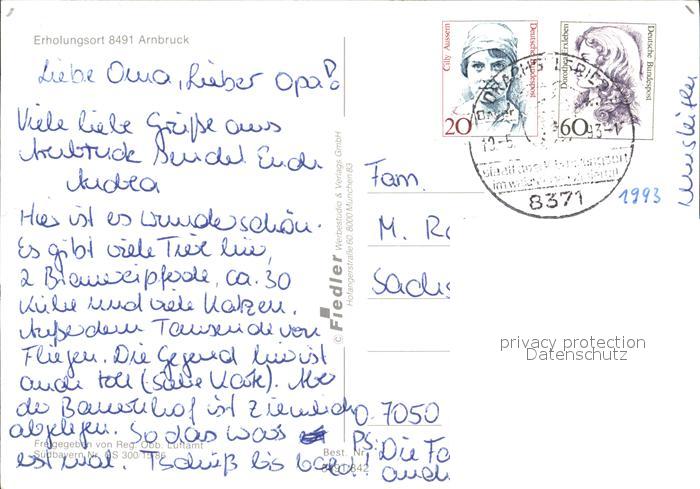 Erholungsort 8491 Arnbruck
Liebe Oma, Lieber Opa!
Viele liebe Grüße aus
Arnbruck sendet Euch
Andrea
Hier ist es wunderschön.
Es gibt viele Tiere hier,
2 Brauereipferde, ca. 30
Kühe und viele Katzen.
Außerdem Tausende von
Fliegen. Die Gegend hier ist
auch toll (siehe Karte). Aber
der Bauernhof ist ziemlich
abgelegen. So das was
erst mal. Tschüß bis bald!
Freigegeben von Reg. Obb. Luftamt
Südbayern Nr. GS 300
Best. Nr.
8491/842
© Fiedler Werbestudio & Verlags GmbH
Hofangerstraße 60 8000 München 83
Cilly Aussem
Deutsche Bundespost
20
Dorothea Erxleben
Deutsche Bundespost
60
8371
1993
Fam.
M. Ro
Sachs
O-7050
PS: Die Fa
auch
privacy protection
Datenschutz